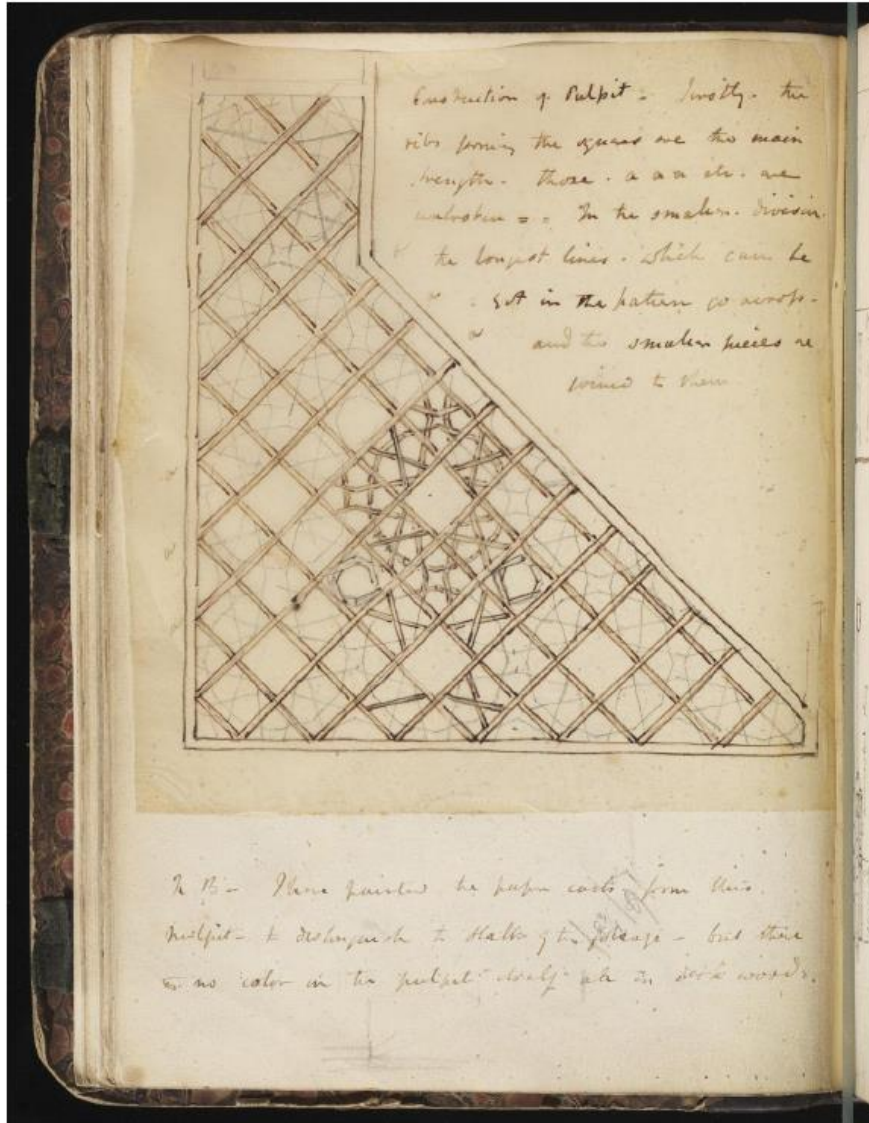 Construction of Pulpit - Firstly - the
ribs forming the squares are the main
strength - those - a a a etc. are
unbroken = = In the smaller division
the longest lines - which can be
got in the pattern go across -
and the smaller pieces are
joined to them
a
a
a
a
a
N B - I have painted the paper casts from this
Pulpit - to distinguish the stalks of the foliage - but there
is no color in the pulpit itself all in dark wood.